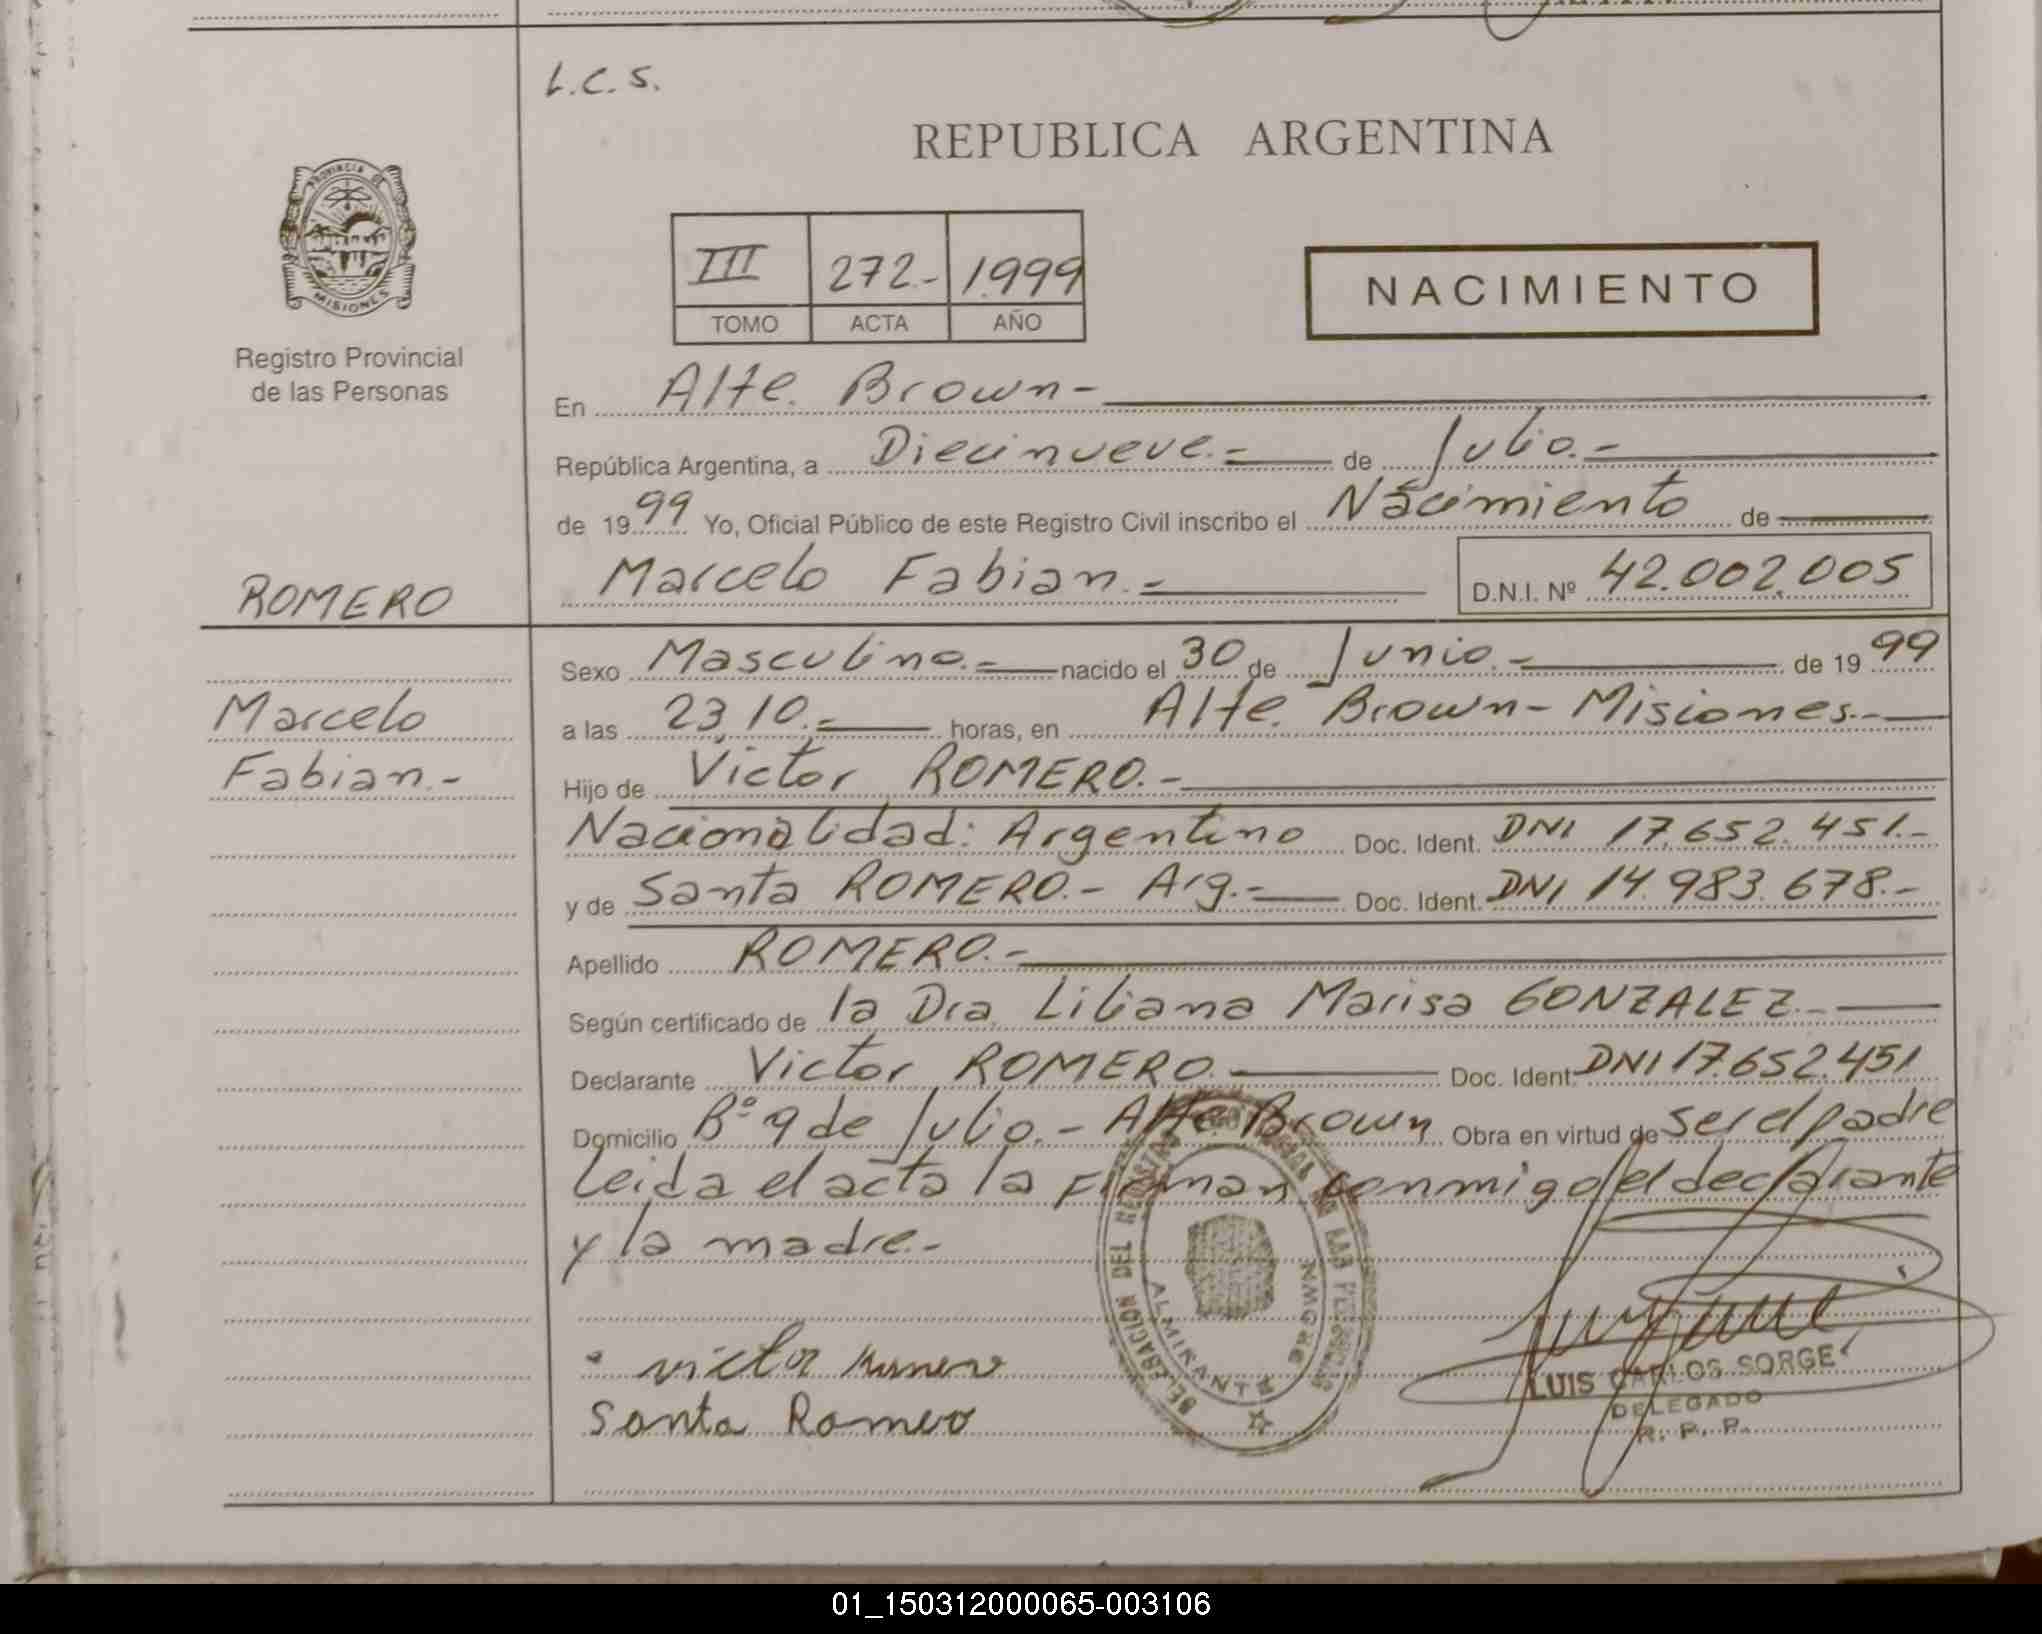 L.C.S.
REPUBLICA ARGENTINA
PROVINCIA DE
MISIONES
Registro Provincial
de las Personas
III 272.- 1.999
TOMO ACTA AÑO
NACIMIENTO
En Alte. Brown-
República Argentina, a Diecinueve.- de Julio.-
de 1999 Yo, Oficial Público de este Registro Civil inscribo el Nacimiento de
Marcelo Fabian.- D.N.I. Nº 42.002.005
ROMERO
Marcelo
Fabian.-
Sexo Masculino.- nacido el 30 de Junio.- de 1999
a las 23,10.- horas, en Alte. Brown- Misiones.-
Hijo de Victor ROMERO.-
Nacionalidad: Argentino Doc. Ident. DNI 17.652.451.-
y de Santa ROMERO.- Arg.- Doc. Ident. DNI 14.983.678.-
Apellido ROMERO.-
Según certificado de la Dra. Liliana Marisa GONZALEZ.-
Declarante Victor ROMERO. Doc. Ident. DNI 17.652.451
Domicilio Bº 9 de Julio.- Alte. Brown Obra en virtud de ser el padre
Leida el acta la Firman conmigo el declarante
y la madre.-
DELEGACION DEL REGISTRO PROVINCIAL DE LAS PERSONAS
ALMIRANTE BROWN
victor Romero
Santa Romero
LUIS CARLOS SORGE
DELEGADO
R. P. P.
01_150312000065-003106